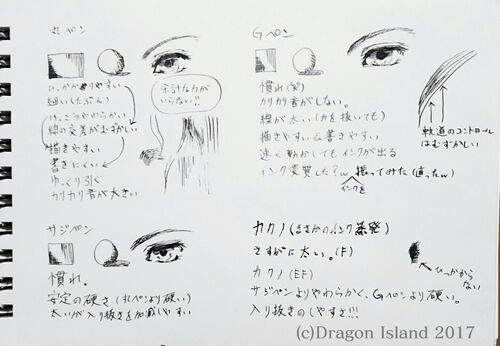 丸ペン
ひっかかりやすい
細い(たぶん)
けっこうやわらかい
線の交差がむずかしい
描きやすい
書きにくい
ゆっくり引く
カリカリ音が大きい
余計な力が
いらない!!
Gペン
慣れ(笑)
カリカリ音がしない。
線が太い(力を抜いても)
描きやすい=書きやすい
速く動かしてもインクが出る
インク変質した?ん 振ってみた(直ったん)
インクを
軌道のコントロール
はむずかしい
サジペン
慣れ。
安定の硬さ(丸ペンより硬い)
太いが入り抜きを加減しやすい
カクノ(まさかのインク蒸発)
さすがに太い。(F)
カクノ(EF)
サジペンよりやわらかく、Gペンより硬い。
入り抜きのしやすさ!!!
ひっかから
ない
(c)Dragon Island 2017